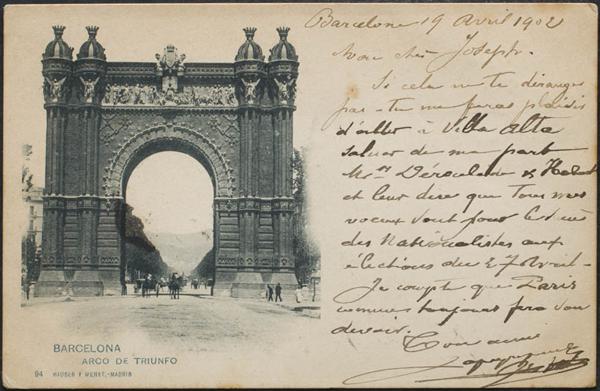 Barcelone 19 Avril 1902
Mon cher Joseph.
Si cela ne te dérange
pas, tu me feras plaisir
d'aller à Villa Alta
saluer de ma part
Mrs Déroulède &
et leur dire que tous mes
voeux sont pour le succès
des Nationalistes aux
élections du 27 Avril -
Je compte que Paris
comme toujours fera son
devoir.
Ton ami
BARCELONA
ARCO DE TRIUNFO
94 HAUSER Y MENET.-MADRID